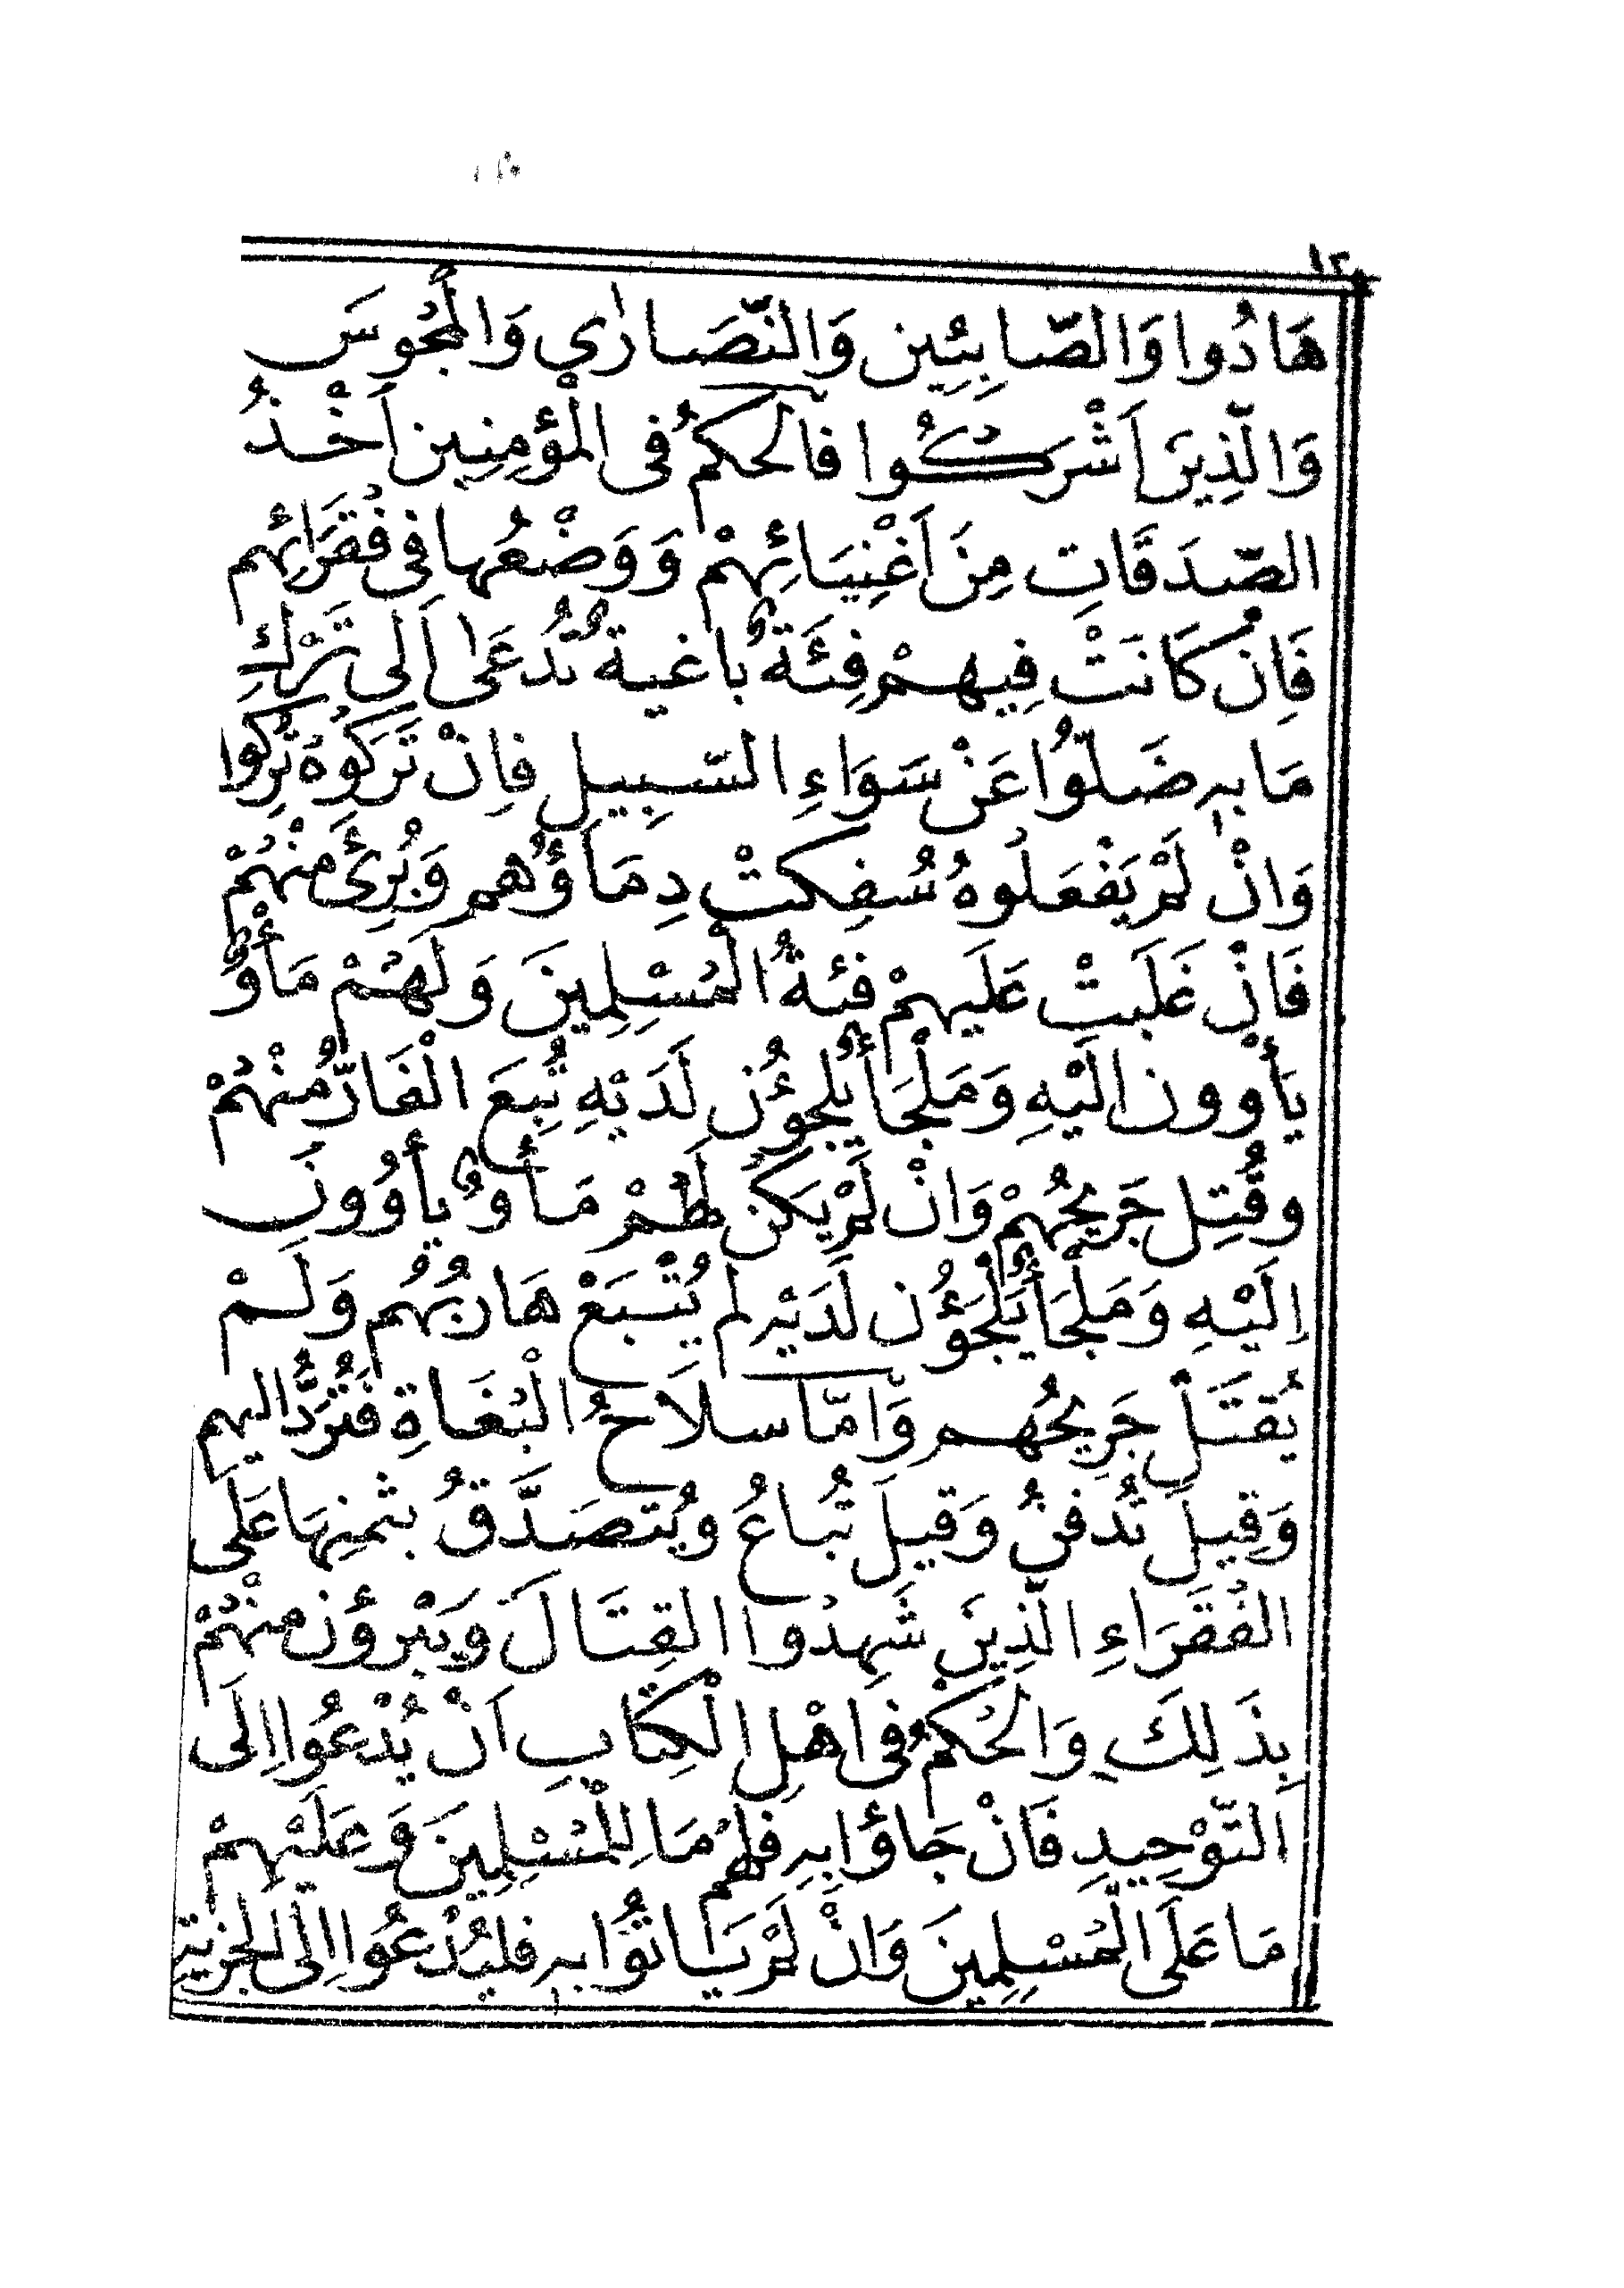 ١٢
هَادُوا وَالصَّابِئِين وَالنَّصَارٰى وَالْمجُوسَ
وَالَّذِينَ اَشْرَكُوا فالحكمُ فى الْمؤمِنِين اَخْذُ
الصَّدَقَاتِ مِنَ اَغْنِيَائِهِمْ وَوَضْعُها فِى فُقَرَائِهم
فَاِنْ كَانَتْ فِيهِمْ فِئَةٌ باغيةٌ تُدعَى اَلى تَرْكِ
مَا بِهِ ضَلُّوا عَنْ سَوَاءِ السَّبِيلِ فاِنْ تَرَكُوهُ تُرِكوا
وَانْ لَمْ يَفْعَلُوهُ سُفِكتْ دِمَاؤُهم وَبُرِئَ منْهُمْ
فَانْ غَلَبتْ عَلَيهِمْ فئةُ الْمُسْلِمِينَ وَلَهُمْ مَأْوًى
يَأْوون الَيْهِ وَمَلْجَأٌ يلجؤُن لَدَيْهِ تُبِعَ الْفَارُّ مُنْهُمْ
وقُتِل جَرِيحُهمْ وَانْ لَمْ يَكُنْ لَهُمْ مَأوًى يأوُونَ
اِلَيْهِ وَمَلْجَأٌ يَلْجَؤُن لَدَيْهِ لم يُتْبَعْ هَاربُهُم وَلَمْ
يُقتَلْ جَرِيحُهم وَامّا سلاَحُ الْبُغَاةِ فَتُرَدُّ اليهم
وَقِيلَ تُدفنُ وَقيلَ تُباعُ ويُتصَدَّقُ بثمنِهَا عَلى
الفُقَرَاءِ الَّذِينَ شَهِدُوا القِتَالَ وَيَبْرؤن منْهُمْ
بِذَلِكَ وَالحُكمُ فى اهْلِ الْكِتَابِ اَنْ يُدْعُوا اِلَى
التَّوْحِيدِ فَانْ جَاؤا بِهِ فلهُمْ مَا لِلْمُسْلِمِينَ وَعَلَيْهِمْ
مَا عَلَى الْمُسْلِمِينَ وَانْ لَمْ يَاتُوا بِهِ فليُدْعُوا اِلَى الجزيَةِ